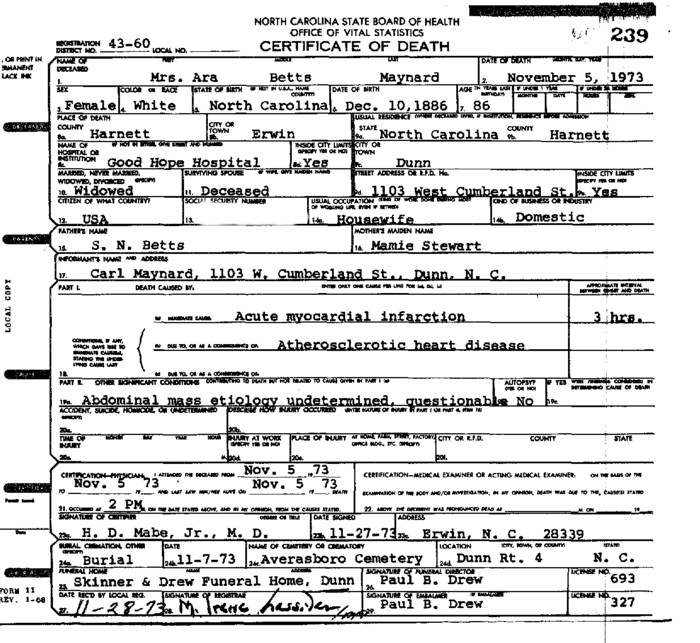 NORTH CAROLINA STATE BOARD OF HEALTH
OFFICE OF VITAL STATISTICS
CERTIFICATE OF DEATH
239
REGISTRATION DISTRICT NO. 43-60 LOCAL NO.
, OR PRINT IN
PERMANENT
LACK INK
NAME OF DECEASED FIRST MIDDLE LAST DATE OF DEATH MONTH, DAY, YEAR
1. Mrs. Ara Betts Maynard 2. November 5, 1973
SEX COLOR OR RACE STATE OF BIRTH (IF NOT IN U.S.A., NAME COUNTRY) DATE OF BIRTH AGE (IN YEARS LAST BIRTHDAY) IF UNDER 1 YEAR MONTHS DAYS IF UNDER 24 HOURS HOURS MIN.
3. Female 4. White 5. North Carolina 6. Dec. 10, 1886 7. 86
PLACE OF DEATH USUAL RESIDENCE (WHERE DECEASED LIVED, IF INSTITUTION, RESIDENCE BEFORE ADMISSION
COUNTY CITY OR TOWN STATE COUNTY
8a. Harnett 8b. Erwin 9a. North Carolina 9b. Harnett
NAME OF HOSPITAL OR INSTITUTION (IF NOT IN EITHER, GIVE STREET AND NUMBER) INSIDE CITY LIMITS (SPECIFY YES OR NO) CITY OR TOWN
8c. Good Hope Hospital 8d. Yes 9c. Dunn
MARRIED, NEVER MARRIED, WIDOWED, DIVORCED (SPECIFY) SURVIVING SPOUSE (IF WIFE, GIVE MAIDEN NAME) STREET ADDRESS OR R.F.D. No. INSIDE CITY LIMITS (SPECIFY YES OR NO)
10. Widowed 11. Deceased 9d. 1103 West Cumberland St. 9e. Yes
CITIZEN OF WHAT COUNTRY? SOCIAL SECURITY NUMBER USUAL OCCUPATION (KIND OF WORK DONE DURING MOST OF WORKING LIFE, EVEN IF RETIRED) KIND OF BUSINESS OR INDUSTRY
12. USA 13. 14a. Housewife 14b. Domestic
FATHER'S NAME MOTHER'S MAIDEN NAME
15. S. N. Betts 16. Mamie Stewart
INFORMANT'S NAME AND ADDRESS
17. Carl Maynard, 1103 W. Cumberland St., Dunn, N. C.
LOCAL COPY
PART I. DEATH CAUSED BY: ENTER ONLY ONE CAUSE PER LINE FOR (a), (b), (c) APPROXIMATE INTERVAL BETWEEN ONSET AND DEATH
(a) IMMEDIATE CAUSE Acute myocardial infarction 3 hrs.
CONDITIONS, IF ANY, WHICH GAVE RISE TO IMMEDIATE CAUSE(a), STATING THE UNDERLYING CAUSE LAST
(b) DUE TO, OR AS A CONSEQUENCE OF: Atherosclerotic heart disease
18. (c) DUE TO, OR AS A CONSEQUENCE OF:
PART II. OTHER SIGNIFICANT CONDITIONS CONTRIBUTING TO DEATH BUT NOT RELATED TO CAUSE GIVEN IN PART I (a) AUTOPSY? (YES OR NO) IF YES WERE FINDINGS CONSIDERED IN DETERMINING CAUSE OF DEATH
19a. Abdominal mass etiology undetermined, questionable No 19c.
ACCIDENT, SUICIDE, HOMICIDE, OR UNDETERMINED (SPECIFY) DESCRIBE HOW INJURY OCCURRED (ENTER NATURE OF INJURY IN PART I OR PART II, ITEM 18)
20a. 20b.
TIME OF INJURY MONTH DAY YEAR HOUR INJURY AT WORK (SPECIFY YES OR NO) PLACE OF INJURY AT HOME, FARM, STREET, FACTORY, OFFICE BLDG., ETC. (SPECIFY) CITY OR R.F.D. COUNTY STATE
20c. M. 20d. 20e. 20f.
CERTIFICATION—PHYSICIAN: I ATTENDED THE DECEASED FROM Nov. 5 73 CERTIFICATION—MEDICAL EXAMINER OR ACTING MEDICAL EXAMINER: ON THE BASIS OF THE
TO Nov. 5 73 AND LAST SAW HIM/HER ALIVE ON Nov. 5 73 DEATH EXAMINATION OF THE BODY AND/OR INVESTIGATION, IN MY OPINION, DEATH WAS DUE TO THE CAUSE(S) STATED
21. OCCURRED AT 2 PM ON THE DATE STATED ABOVE, AND IN MY OPINION, FROM THE CAUSES STATED. 22. ABOVE. THE DECEDENT WAS PRONOUNCED DEAD AT M. ON 19
SIGNATURE OF CERTIFIER DEGREE OR TITLE DATE SIGNED ADDRESS
23a. H. D. Mabe, Jr., M. D. 23b. 11-27-73 23c. Erwin, N. C. 28339
BURIAL, CREMATION, OTHER (SPECIFY) DATE NAME OF CEMETERY OR CREMATORY LOCATION (CITY, TOWN, OR COUNTY) (STATE)
24a. Burial 24b. 11-7-73 24c. Averasboro Cemetery 24d. Dunn Rt. 4 N. C.
FUNERAL HOME NAME ADDRESS SIGNATURE OF FUNERAL DIRECTOR LICENSE NO.
25. Skinner & Drew Funeral Home, Dunn 26. Paul B. Drew 693
FORM 11
REV. 1-68
DATE REC'D BY LOCAL REG. SIGNATURE OF REGISTRAR SIGNATURE OF EMBALMER IF EMBALMED LICENSE NO.
27. 11-28-73 28. M. Irene Lassiter 29. Paul B. Drew 327